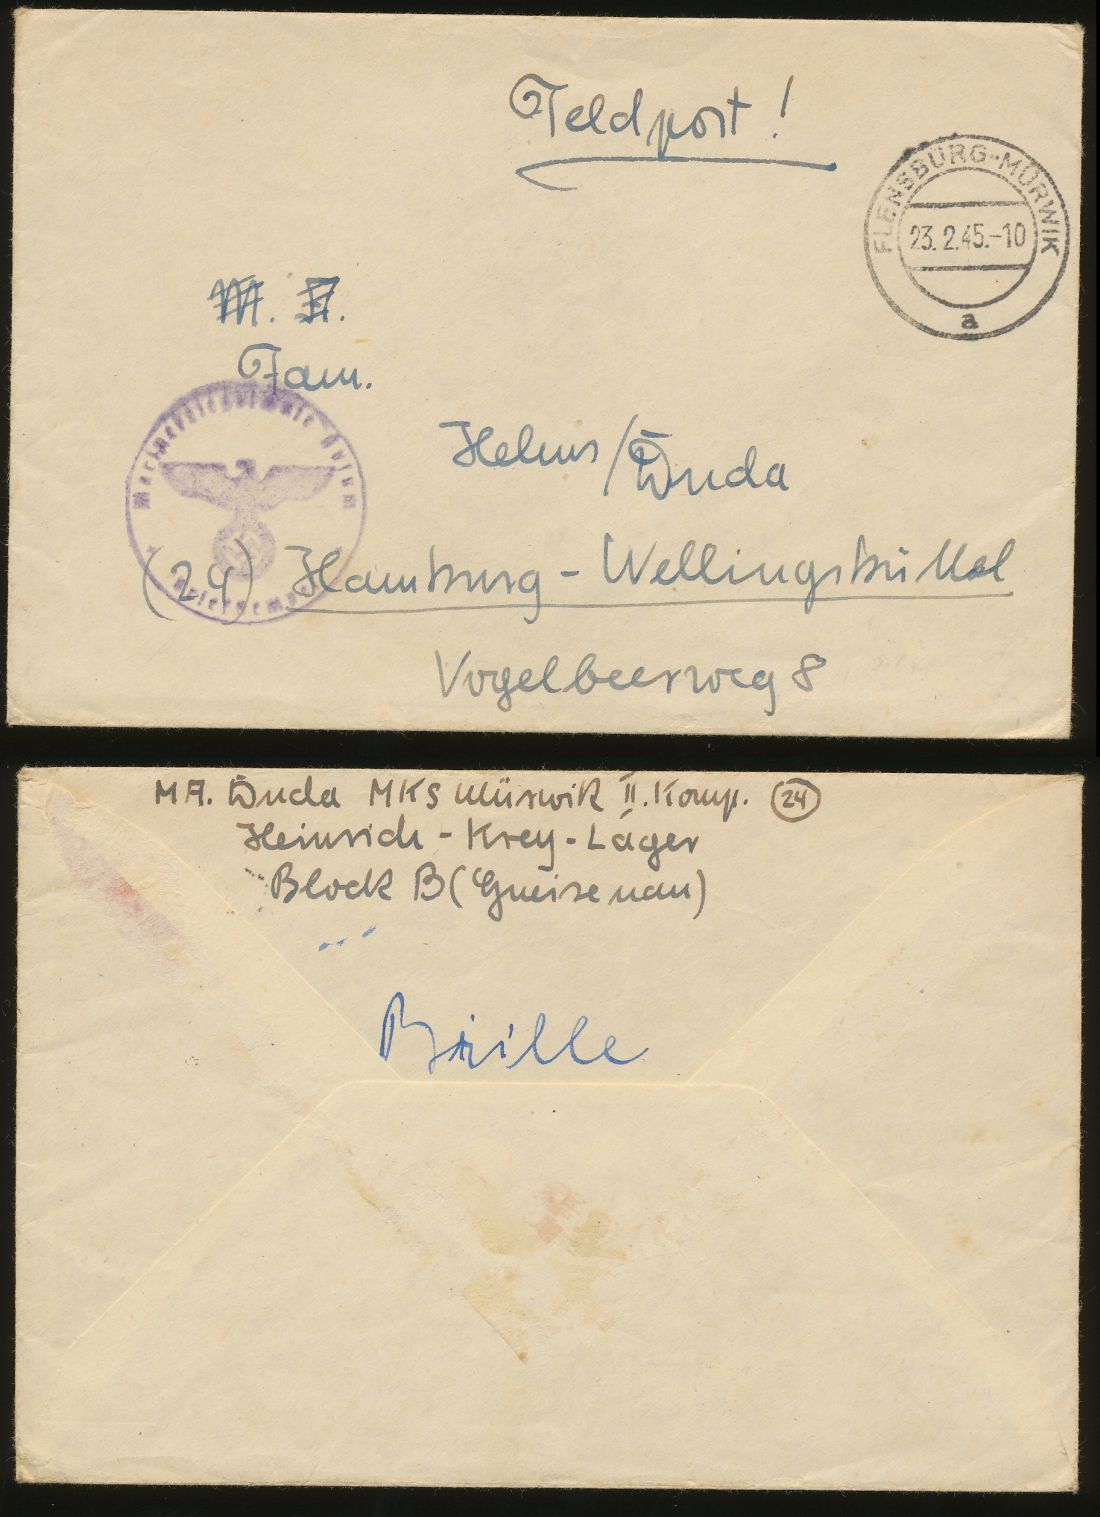 Feldpost!
FLENSBURG-MÜRWIK
23.2.45.-10
a
Fam.
Helms/Duda
(24) Hamburg-Wellingsbüttel
Vogelbeerweg 8
MA. Duda MKS Mürwik II. Komp. (24)
Heinrich-Krey-Lager
Block B (Gneisenau)
Brille